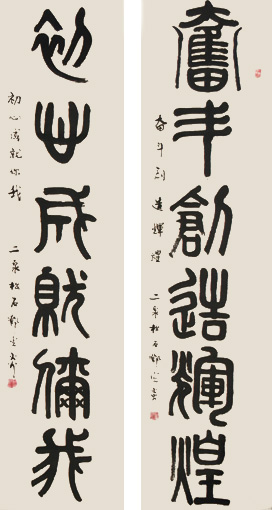 奮斗創造輝煌
奋斗创造輝煌
二泉松石
初心成就儞我
初心成就你我
二泉松石